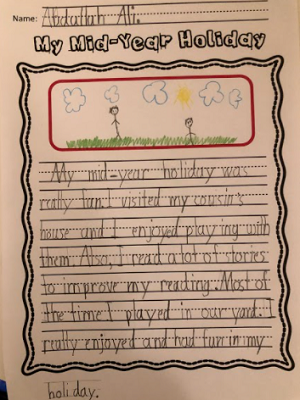 Name: Abdullah Ali.
My Mid-Year Holiday
My mid-year holiday was
really fun. I visited my cousin's
house and I enjoyed playing with
them. Also, I read a lot of stories
to improve my reading. Most of
the time I played in our yard. I
really enjoyed and had fun in my
holiday.